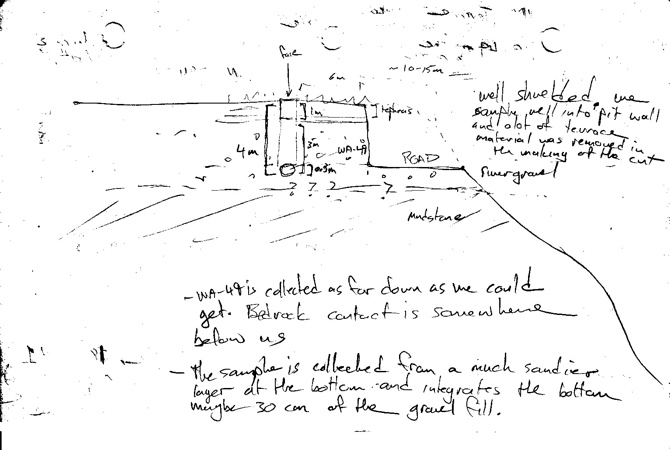 face
6m
~10-15m
well shielded, we
sample well into pit wall
and a lot of terrace
material was removed in
the making of the cut
1m
tephras
4m
3m
WA-49
0.3m
ROAD
River gravel
? ? ? ?
?
mudstone
- WA-49 is collected as far down as we could
get. Bedrock contact is somewhere
below us
- The sample is collected from a much sandier
layer at the bottom and integrates the bottom
maybe 30 cm of the gravel fill.